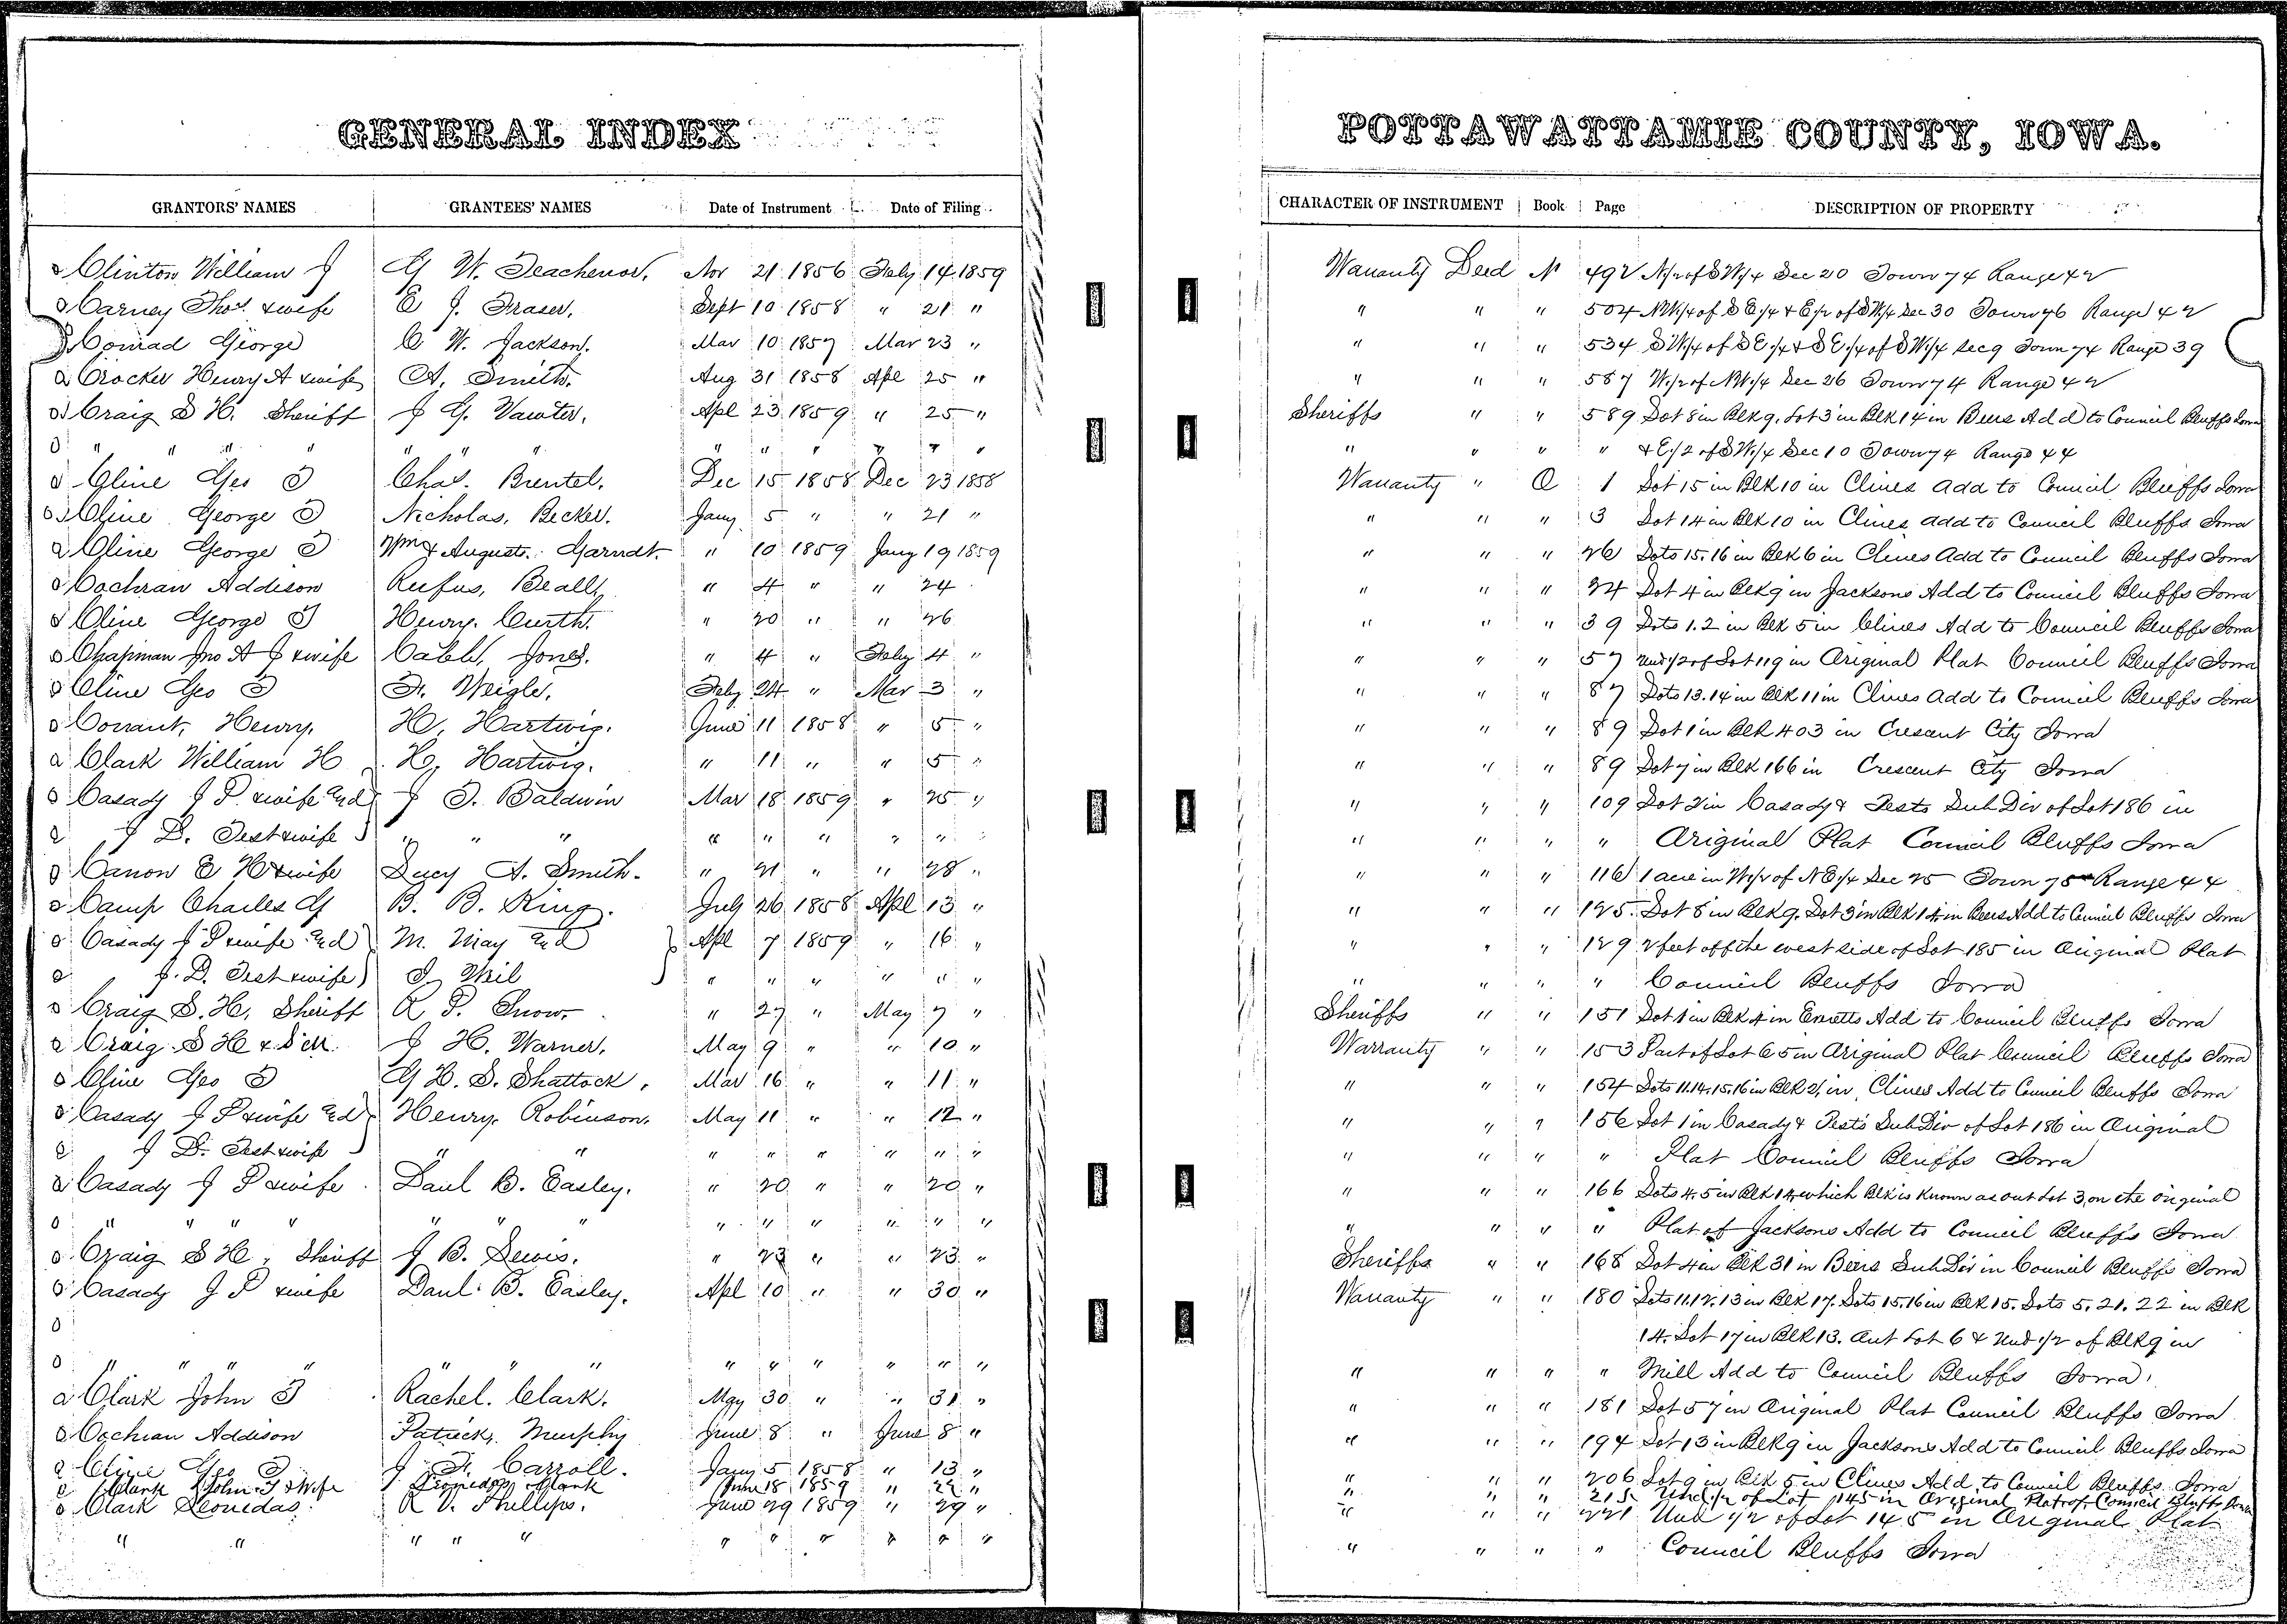 GENERAL INDEX
POTTAWATTAMIE COUNTY, IOWA.
GRANTORS' NAMES GRANTEES' NAMES Date of Instrument Date of Filing
CHARACTER OF INSTRUMENT Book Page DESCRIPTION OF PROPERTY
Clinton William J G W. Teachenor. Nov 21 1856 Feby 14 1859 Warranty Deed N 492 N/2 of SW/4 Sec 20 Town 74 Range 42
Carney Thos. & wife E J. Fraser. Sept 10 1858 " 21 " " " " 504 NW/4 of SE/4 & E/2 of SW/4 Sec 30 Town 76 Range 42
Conrad George C W. Jackson. Mar 10 1857 Mar 23 " " " " 534 SW/4 of SE/4 & SE/4 of SW/4 Sec 9 Town 74 Range 39
Crocker Henry A & wife A. Smith. Aug 31 1858 Apl 25 " " " " 587 W/2 of NW/4 Sec 26 Town 74 Range 42
Craig S H. Sheriff J G. Vawter. Apl 23 1859 " 25 " Sheriffs " " 589 Lot 8 in Blk 9, Lot 3 in Blk 14 in Beers Add to Council Bluffs Iowa
" " " " " " " " " " " " " " " " " " & E/2 of SW/4 Sec 10 Town 74 Range 44
Cline Geo T Chas. Brentel. Dec 15 1858 Dec 23 1858 Warranty " O 1 Lot 15 in Blk 10 in Clines Add to Council Bluffs Iowa
Cline George T Nicholas, Becker. Jany 5 " " 21 " " " " 3 Lot 14 in Blk 10 in Clines Add to Council Bluffs Iowa
Cline George T Wm & August. Garndt. " 10 1859 Jany 19 1859 " " " 26 Lots 15.16 in Blk 6 in Clines Add to Council Bluffs Iowa
Cochran Addison Rufus, Beall, " 4 " " 24 " " " 34 Lot 4 in Blk 9 in Jacksons Add to Council Bluffs Iowa
Cline George T Henry. Curth. " 20 " " 26 " " " 39 Lots 1.2 in Blk 5 in Clines Add to Council Bluffs Iowa
Chapman Jno A J & wife Caleb, Jones. " 4 " Feby 4 " " " " 57 Und 1/2 of Lot 119 in Original Plat Council Bluffs Iowa
Cline Geo T F. Weigle. Feby 24 " Mar 3 " " " " 87 Lots 13.14 in Blk 11 in Clines Add to Council Bluffs Iowa
Conant, Henry. H, Hartwig. June 11 1858 " 5 " " " " 89 Lot 1 in Blk 403 in Crescent City Iowa
Clark William H H, Hartwig. " 11 " " 5 " " " " 89 Lot 7 in Blk 166 in Crescent City Iowa
Casady J P. & wife and J T. Baldwin Mar 18 1859 " 25 " " " " 109 Lot 2 in Casady & Tests Sub Div of Lot 186 in
J D. Test & wife " " " " " " " " " " " " " Original Plat Council Bluffs Iowa
Canon E H & wife Lucy A. Smith. " 21 " " 28 " " " " 116 1 acre in W/2 of NE/4 Sec 25 Town 75 Range 44
Camp Charles G B. B. King. July 26 1858 Apl 13 " " " " 125 Lot 8 in Blk 9. Lot 3 in Blk 14 in Beers Add to Council Bluffs Iowa
Casady J P & wife and M. May and Apl 7 1859 " 16 " " " " 129 2 feet off the west side of Lot 185 in Original Plat
J. D. Test & wife " " " " " " " " " " Council Bluffs Iowa
Craig S. H, Sheriff R P. Snow. " 27 " May 7 " Sheriffs " " 151 Lot 1 in Blk 4 in Ennetts Add to Council Bluffs Iowa
Craig S H & J H. Warner. May 9 " " 10 " Warranty " " 153 Part of Lot 65 in Original Plat Council Bluffs Iowa
Cline Geo T G H. S. Shattock. Mar 16 " " 11 " " " " 154 Lots 11.14.15.16 in Blk 2, in Clines Add to Council Bluffs Iowa
Casady J P & wife and Henry. Robinson. May 11 " " 12 " " " " 156 Lot 1 in Casady & Tests Sub Div of Lot 186 in Original
J D. Test & wife " " " " " " " " " " " " Plat Council Bluffs Iowa
Casady J P & wife Danl B. Easley. " 20 " " 20 " " " " 166 Lots 4.5 in Blk 14, which Blk is known as out Lot 3, on the original
" " " " " " " " " " " " " " " " " Plat of Jacksons Add to Council Bluffs Iowa
Craig S H, Sheriff J B. Lewis. " 23 " " 23 " Sheriffs " " 168 Lot 4 in Blk 31 in Beers Sub Div in Council Bluffs Iowa
Casady J P & wife Danl. B. Easley. Apl 10 " " 30 " Warranty " " 180 Lots 11.12.13 in Blk 17. Lots 15.16 in Blk 15. Lots 5. 21. 22 in Blk
14. Lot 17 in Blk 13. Out Lot 6 & Und 1/2 of Blk 9 in
" " " " " " " " " " " " " " " " " " Mill Add to Council Bluffs Iowa.
Clark John T Rachel. Clark. May 30 " " 31 " " " " 181 Lot 57 in Original Plat Council Bluffs Iowa
Cochran Addison Patrick, Murphy June 8 " June 8 " " " " 194 Lot 13 in Blk 9 in Jacksons Add to Council Bluffs Iowa
Cline Geo T J F. Carroll. Jany 5 1858 " 13 " " " " 206 Lot 9 in Blk 5 in Clines Add to Council Bluffs Iowa
Clark John T & Wife Leonidas Clark June 18 1859 " 22 " " " " 215 Und 1/2 of Lot 145 in Original Plat of Council Bluffs Iowa
Clark Leonidas. R V. Phillips. June 29 1859 " 29 " " " " 221 Und 1/2 of Lot 145 in Original Plat
" " " " " " " " " " " " " " " Council Bluffs Iowa